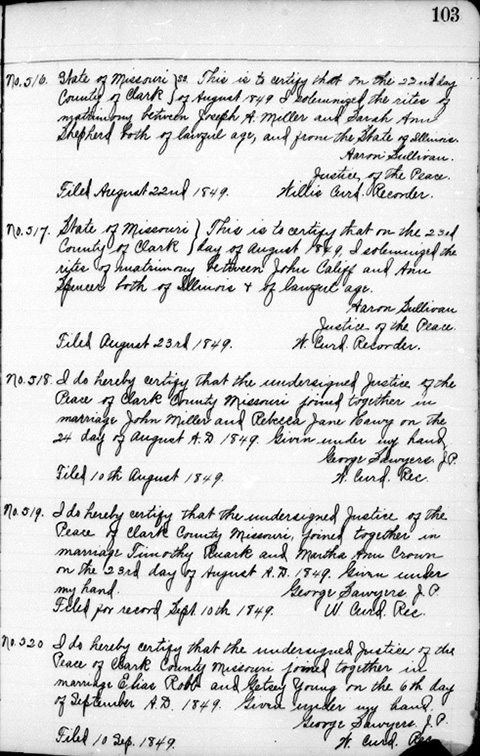 103
No. 516. State of Missouri } ss. This is to certify that on the 22nd day
County of Clark } of August 1849 I solemnized the rites of
matrimony between Joseph A. Miller and Sarah Ann
Shepherd both of lawful age, and from the State of Illinois.
Aaron Sullivan.
Justice of the Peace.
Filed August 22nd 1849. Willis Curd. Recorder.
No. 517. State of Missouri } This is to certify that on the 23rd
County of Clark } day of August 1849, I solemnized the
rites of matrimony between John Califf and Ann
Spencer both of Illinois & of lawful age.
Aaron Sullivan
Justice of the Peace.
Filed August 23rd 1849. W. Curd. Recorder.
No. 518. I do hereby certify that the undersigned Justice of the
Peace of Clark County Missouri joined together in
marriage John Miller and Rebecca Jane on the
24 day of August A.D. 1849. Givin under my hand
George Sawyers J.P.
Filed 10th August 1849. W. Curd. Rec.
No. 519. I do hereby certify that the undersigned Justice of the
Peace of Clark County Missouri, joined together in
marriage Timothy Ruark and Martha Ann Crown
on the 23rd day of August A.D. 1849. Givin under
my hand. George Sawyers, J.P.
Filed for record Sept. 10th 1849. W Curd. Rec.
No. 520 I do hereby certify that the undersigned Justice of the
Peace of Clark County Missouri joined together in
marriage Elias Robb and Getsey Young on the 6th day
of September A.D. 1849. Givin under my hand.
George Sawyers. J.P.
Filed 10 Sep. 1849. W. Curd. Rec